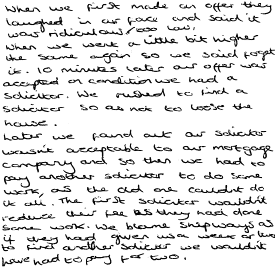 When we first made an offer they
laughed in our face and said it
was ridiculous/too low.
When we went a little bit higher
the same again so we said forget
it. 10 minutes later our offer was
accepted on condition we had a
solicitor. We rushed to find a
solicitor so as not to loose the
house.
Later we found out our solicitor
wasn't acceptable to our mortgage
company and so then we had to
pay another solicitor to do some
work, as the old one couldn't do
it all. The first solicitor wouldn't
reduce their fee as they had done
some work. We blame Shipways as
if they had given us a week or two
to find another solicitor we wouldn't
have had to pay for two.